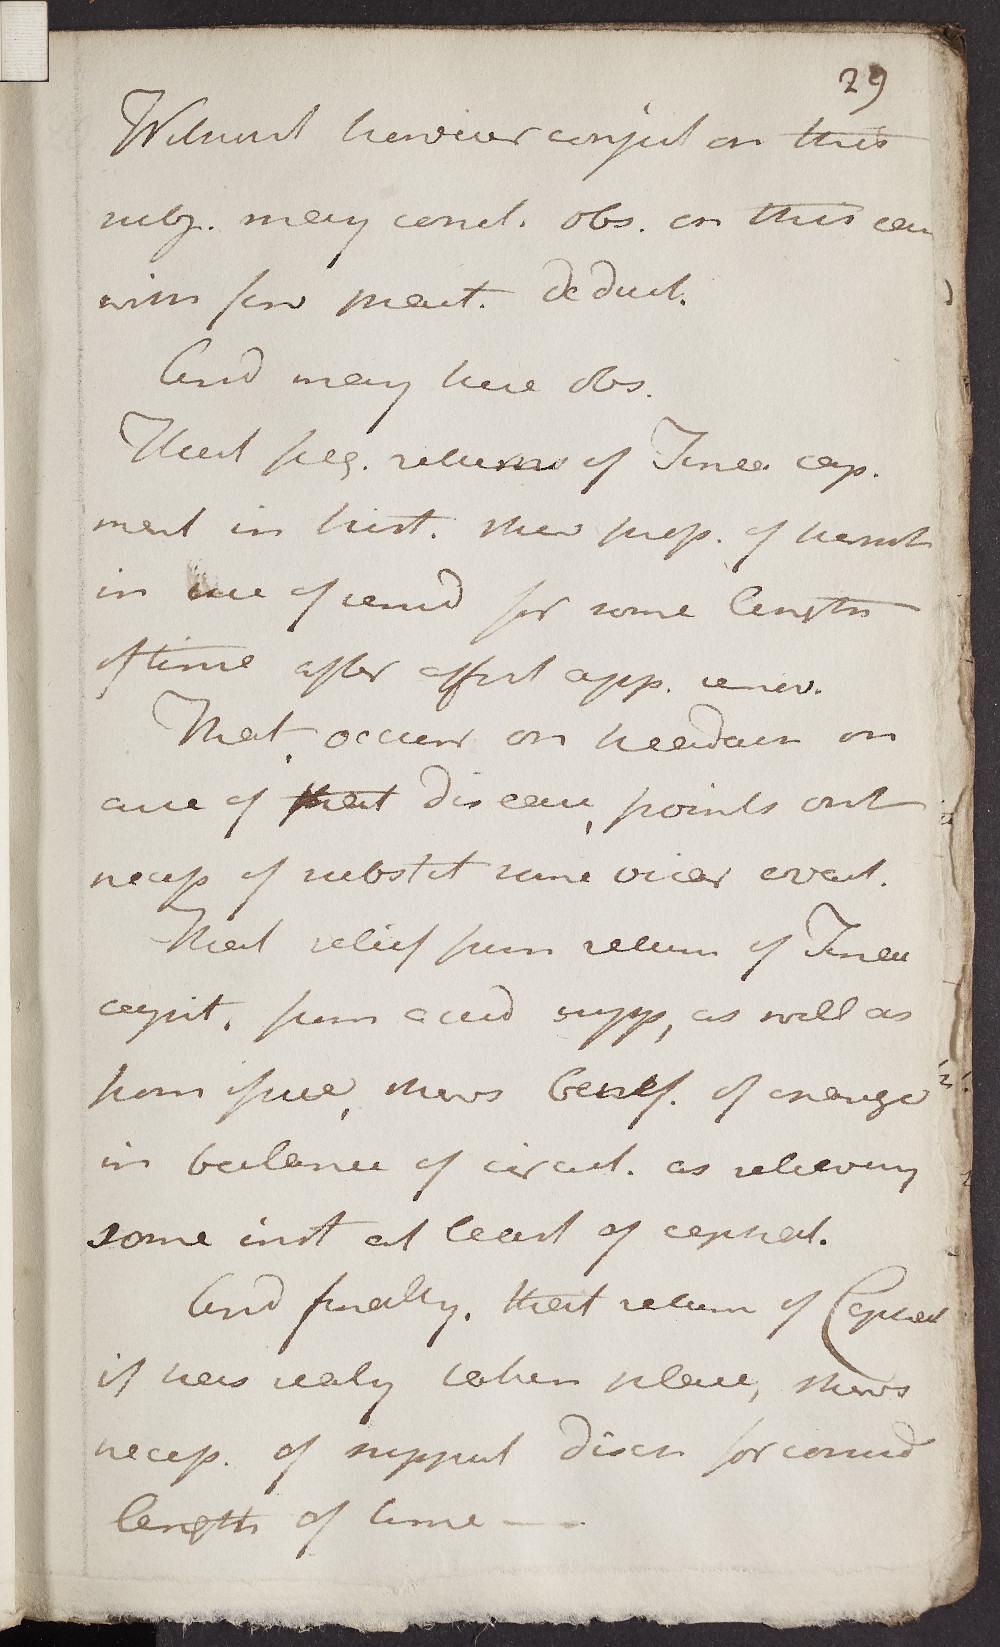 29
Without however conject on this
subj. may concl. obs. on this case
with few pract. deduct.
And may here obs.
That freq. returns of Tinea cap.
ment in hist. shew prop. of persist
in use of remed for some length
of time after affect app. remov.
That, occurr on headach on
cure of that disease, points out
necess of substit some vicar evacu.
That relief from return of Tinea
capit. from accid supp, as well as
from issue, shews benef. of change
in balance of circul. as relieving
some inst at least of cephal.
And finally, that return of Cephal
if has realy taken place, shews
necess. of support disch for consid
length of time —